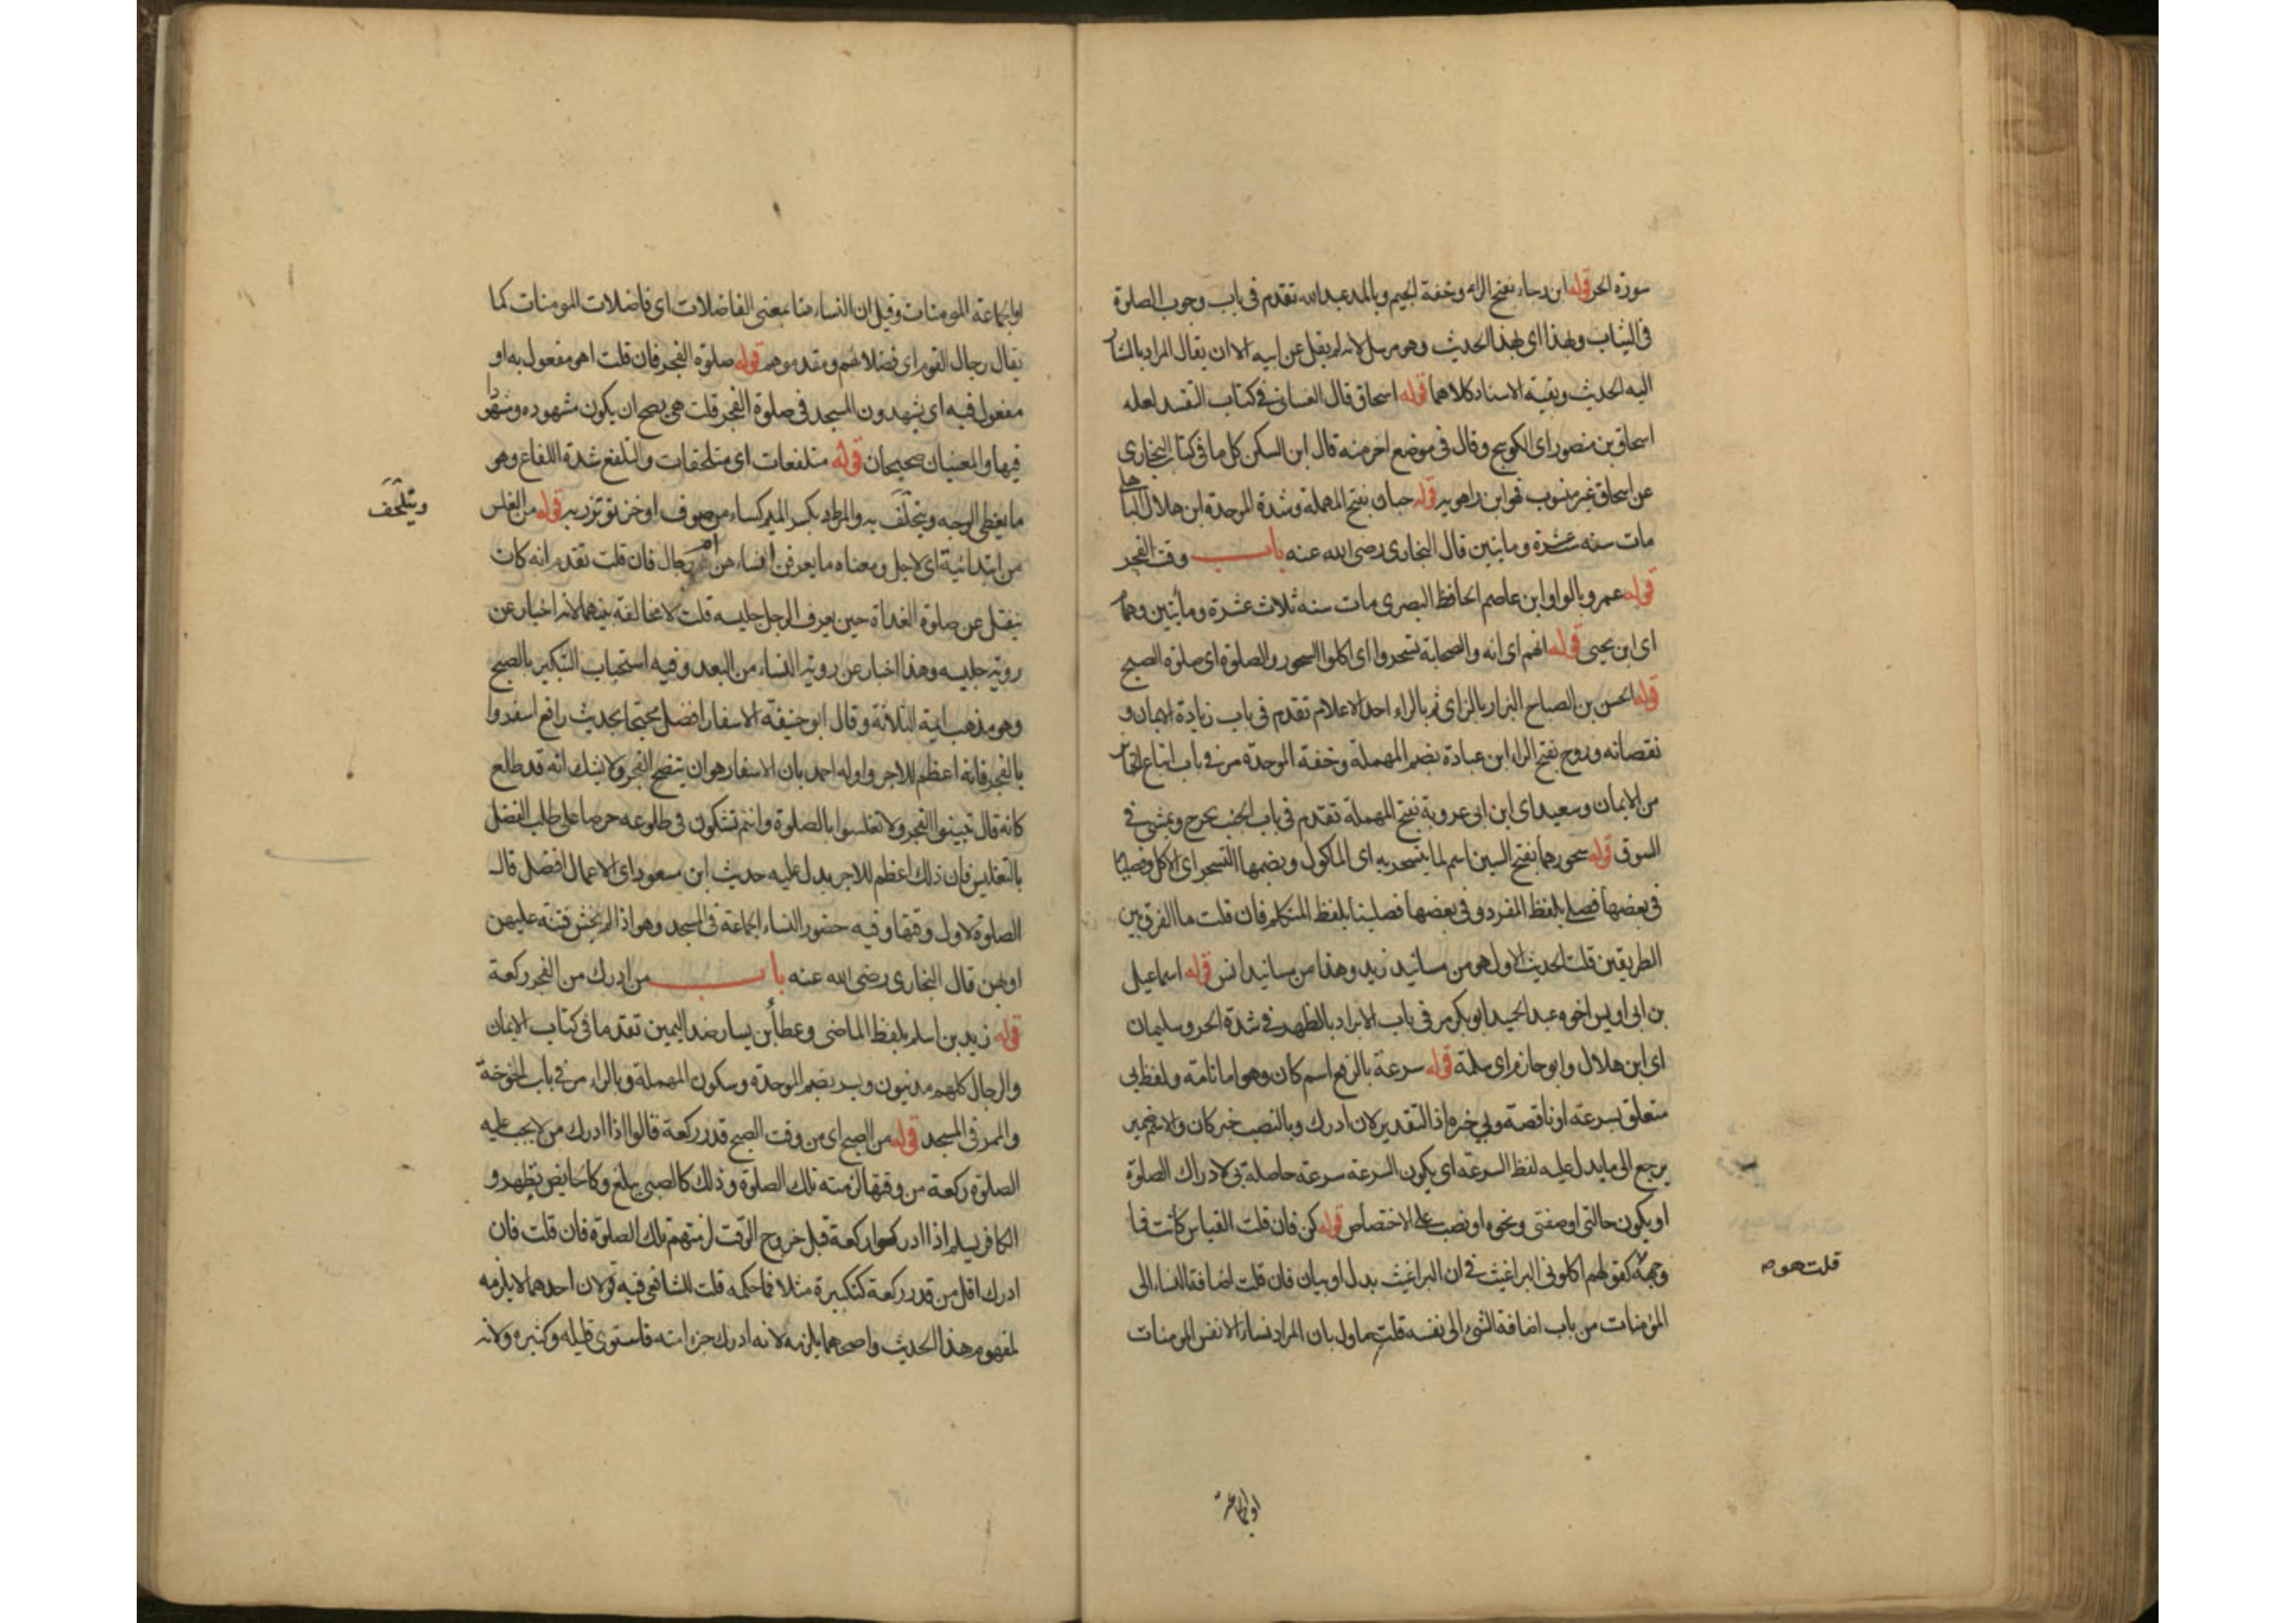 سورة الحر قوله ابن رجاء بفتح الراء وخفة الجيم وبالمد عبد الله تقدم فى باب وجوب الصلوة
فى الثياب وبهذا اى بهذا الحديث وهو مرسل لانه لم يقل عن ابيه الا ان يقال المراد بالمشار
اليه الحديث وبقية الاسناد كلاهما قوله اسحاق قال الغسانى فى كتاب التقييد لعله
اسحاق بن منصور اى الكوسج وقال فى موضع اخر منه قال ابن السكن كل ما فى كتاب البخارى
عن اسحاق غير منسوب فهو ابن راهويه قوله حبان بفتح المهملة وشدة الموحدة ابن هلال الباهلى
مات سنه عشرة ومايتين قال البخارى رضى الله عنه باب وقت الفجر
قوله عمرو بالواو ابن عاصم الحافظ البصرى مات سنه ثلاث عشرة ومأتين وهمام
اى ابن يحيى قوله انهم اى انه والصحابة تسحروا اى اكلوا السحور والصلوة اى صلوة الصبح
قوله الحسن بن الصباح البزار بالزاى ثم بالراء احد الاعلام تقدم فى باب زيادة الايمان و
نقصانه وروح بفتح الراء ابن عبادة بضم المهملة وخفة الموحدة مر فى باب اتباع الجنائز
من الايمان وسعيد اى ابن ابى عروبة بفتح المهملة تقدم فى باب الجنب يخرج ويمشى فى
السوق قوله سحورهما بفتح السين اسم لما يتسحر به اى الماكول وبضمها التسحر اى الاكل وفصليا
فى بعضها فصلى بلفظ المفرد وفى بعضها فصلينا بلفظ المتكلم فان قلت ما الفرق بين
الطريقين قلت الحديث الاول هو من مسانيد زيد وهذا من مسانيد انس قوله اسماعيل
بن ابى اويس اخوه عبد الحميد ابو بكر مر فى باب الابراد بالظهر فى شدة الحر وسليمان
اى ابن هلال وابو حازم اى سلمة قوله سرعة بالرفع اسم كان وهو اما تامه ولفظ بى
متعلق بسرعة او ناقصة وبى خبره اذ التقدير لان ادرك وبالنصب خبر كان والاسم ضمير
يرجع الى ما يدل عليه لفظ السرعه اى يكون السرعه سرعة حاصلة بى لادراك الصلوة
او يكون حالتى او صفتى ونحوه او نصب على الاختصاص قوله كن فان قلت القياس كانت فما
وجهه كقولهم اكلونى البراغيث فى ان البراغيث بدل او بيان فان قلت اضافة النساء الى
قلت هو
المؤمنات من باب اضافة الشئ الى نفسه قلت ماول بان المراد نساء الانفس المومنات
او الجماعة
او الجماعة المومنات وقيل ان النساء هنا بمعنى الفاضلات اى فاضلات المومنات كما
يقال رجال القوم اى فضلائهم ومقدموهم قوله صلوة الفجر فان قلت اهو مفعول به او
مفعول فيه اى يشهدون المسجد فى صلوة الفجر قلت هى يصح ان يكون مشهوده ومشهودا
فيها والمعنيان صحيحان قوله متلفعات اى متلحفات والتلفع شدة اللفاع وهو
ما يغطى الوجه ويتحلف به والمرط بكسر الميم كساء من صوف او خز تؤتزر به قوله من الغلس
ويتلحف
من ابتدائية اى لاجل ومعناه ما يعرفن انساء هن ام رجال فان قلت تقدم انه كان
ينفتل عن صلوة الغداة حين يعرف الرجل جليسه قلت لا مخالفة بينهما لانه اخبار عن
روية جليسه وهذا اخبار عن روية النساء من البعد وفيه استحباب التبكير بالصبح
وهو مذهب ائمة الثلاثة وقال ابو حنيفة الاسفار افضل محتجا بحديث رافع اسفروا
بالفجر فانه اعظم للاجر واوله احمد بان الاسفار هو ان يتضح الفجر ولا يشك انه قد طلع
كانه قال تبينوا الفجر ولا تغلسوا بالصلوة وانتم تشكون فى طلوعه حرصا على طلب الفضل
بالتغليس فان ذلك اعظم للاجر يدل عليه حديث ابن مسعود اى الاعمال افضل قال
الصلوة لاول وقتها وفيه حضور النساء الجماعة فى المسجد وهو اذا لم يخش فتنه عليهن
او بهن قال البخارى رضى الله عنه باب من ادرك من الفجر ركعة
قوله زيد بن اسلم بلفظ الماضى وعطأ بن يسار ضد اليمين تقدما فى كتاب الايمان
والرجال كلهم مدنيون وبسر بضم الموحدة وسكون المهملة وبالراء مر فى باب الخوخة
والممر فى المسجد قوله من الصبح اى من وقت الصبح قدر ركعة قالوا اذا ادرك من لا يجب عليه
الصلوة ركعة من وقتها لزمته تلك الصلوة وذلك كالصبى يبلغ وكالحايض تطهر و
الكافر يسلم اذا ادركوا ركعة قبل خروج الوقت لزمتهم تلك الصلوة فان قلت فان
ادرك اقل من قدر ركعة كتكبيرة مثلا فما حكمه قلت للشافعى فيه قولان احدهما لا يلزمه
لمفهوم هذا الحديث واصحهما يلزمه لانه ادرك جزا منه فاستوى قليله وكثيره ولانه